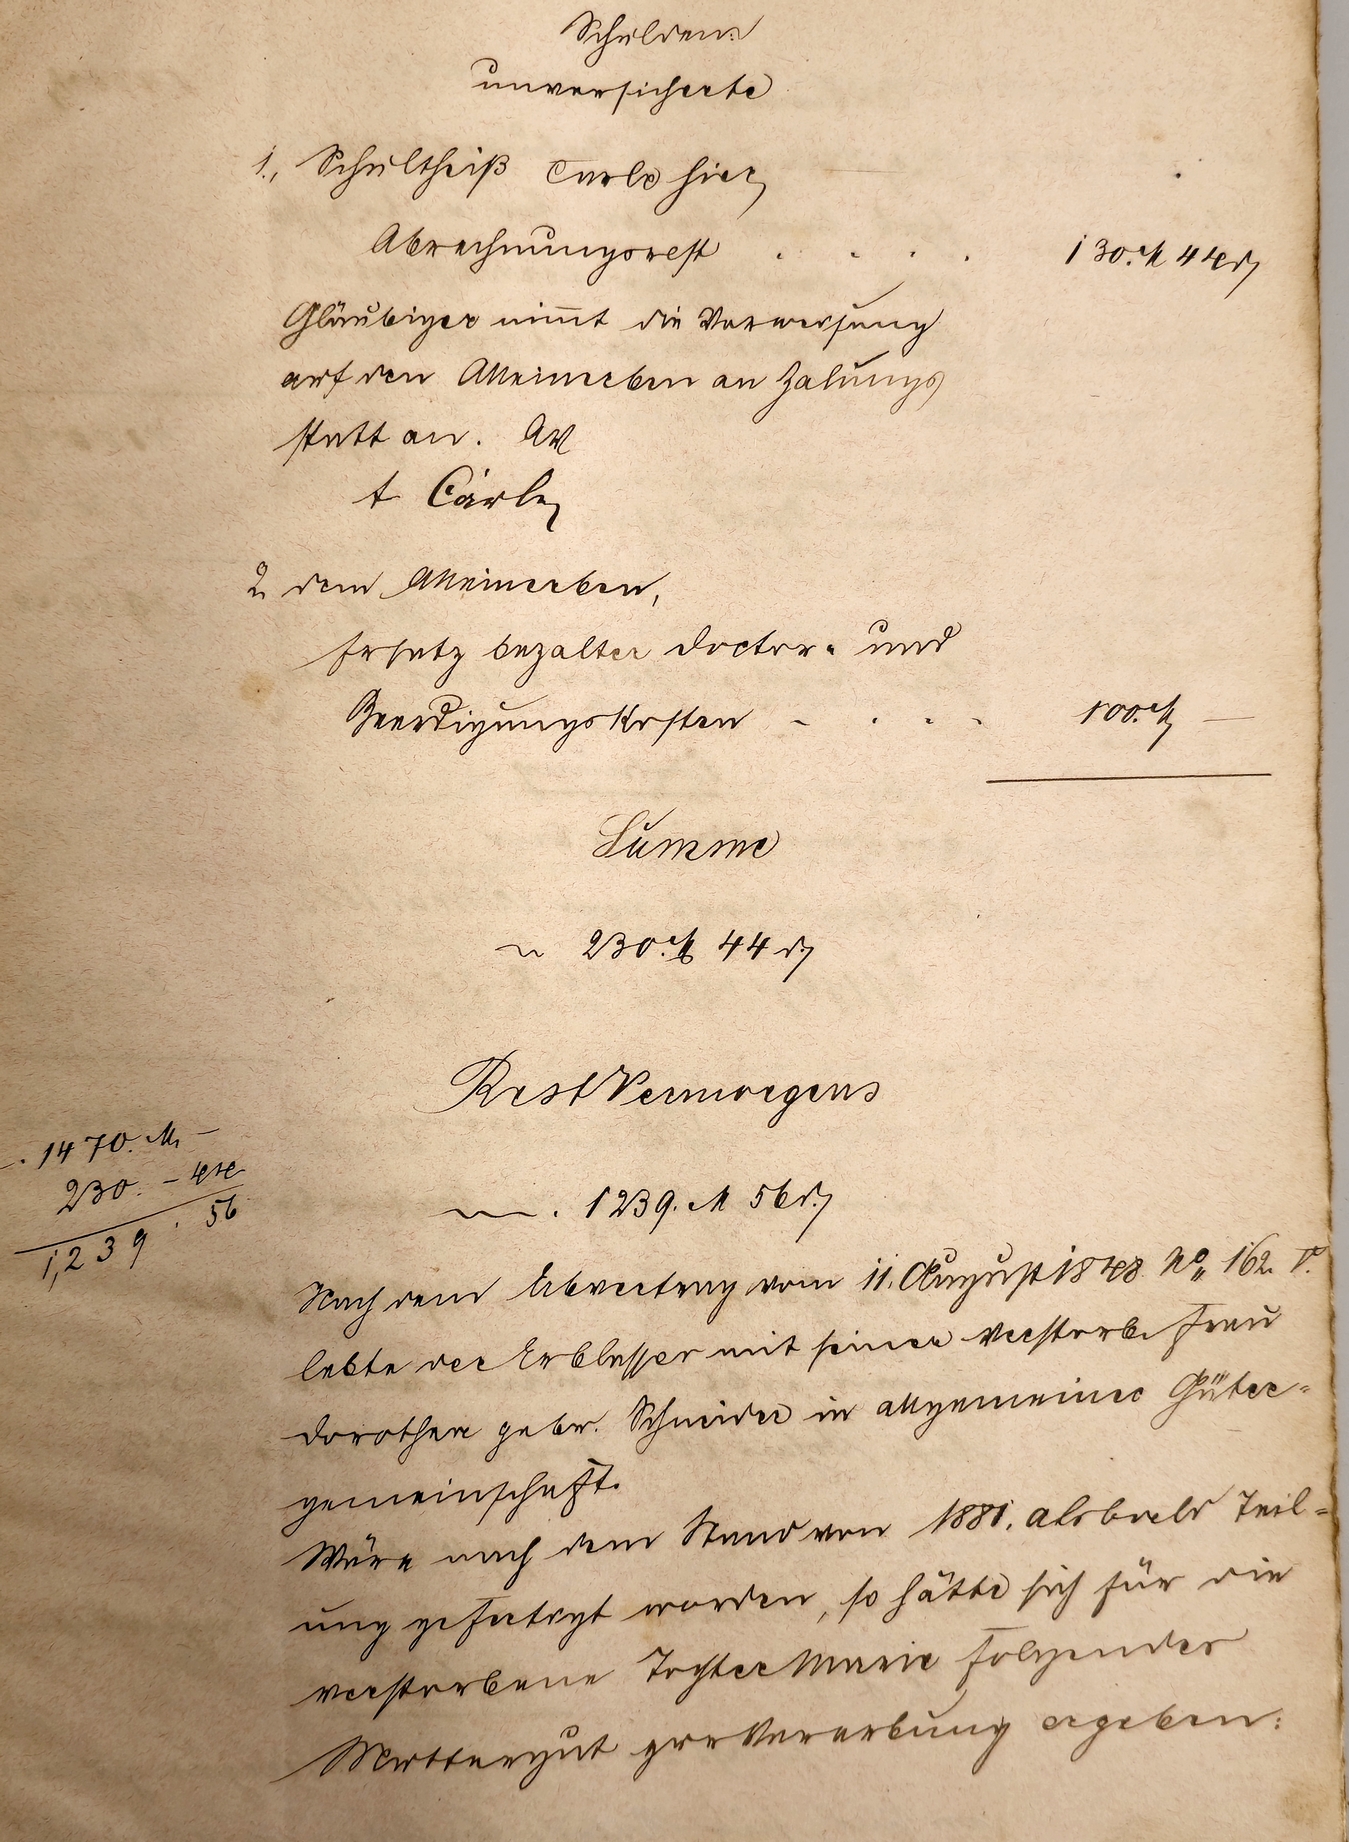 Schulden:
unversicherte
1., Schultheiß Carle hier,
Abrechnungsrest . . . . 130. M 44 d
Gläubiger nimmt die Verweisung
auf den Alleinerben an Zalungs
statt an.
t Carle
2. dem Alleinerben,
Ersatz bezalter Doctor- und
Beerdigungskosten - . . . 100. M —
Summe
230. M 44 d
Rest Vermoegens
1470. M. —
230. — 44
1,239 . 56
. 1239. M 56 d.
Nach dem Ehevertrag vom 11. August 1848 No 162.
lebte der Erblasser mit seiner verstorb. Frau
Dorothea gebr. Schneider in allgemeiner Güter-
gemeinschaft.
Wäre nach dem Stand von 1881. alsbald Teil-
ung gefertigt worden, so hätte sich für die
verstorbene Tochter Marie folgendes
Muttergut zur Vererbung ergeben: